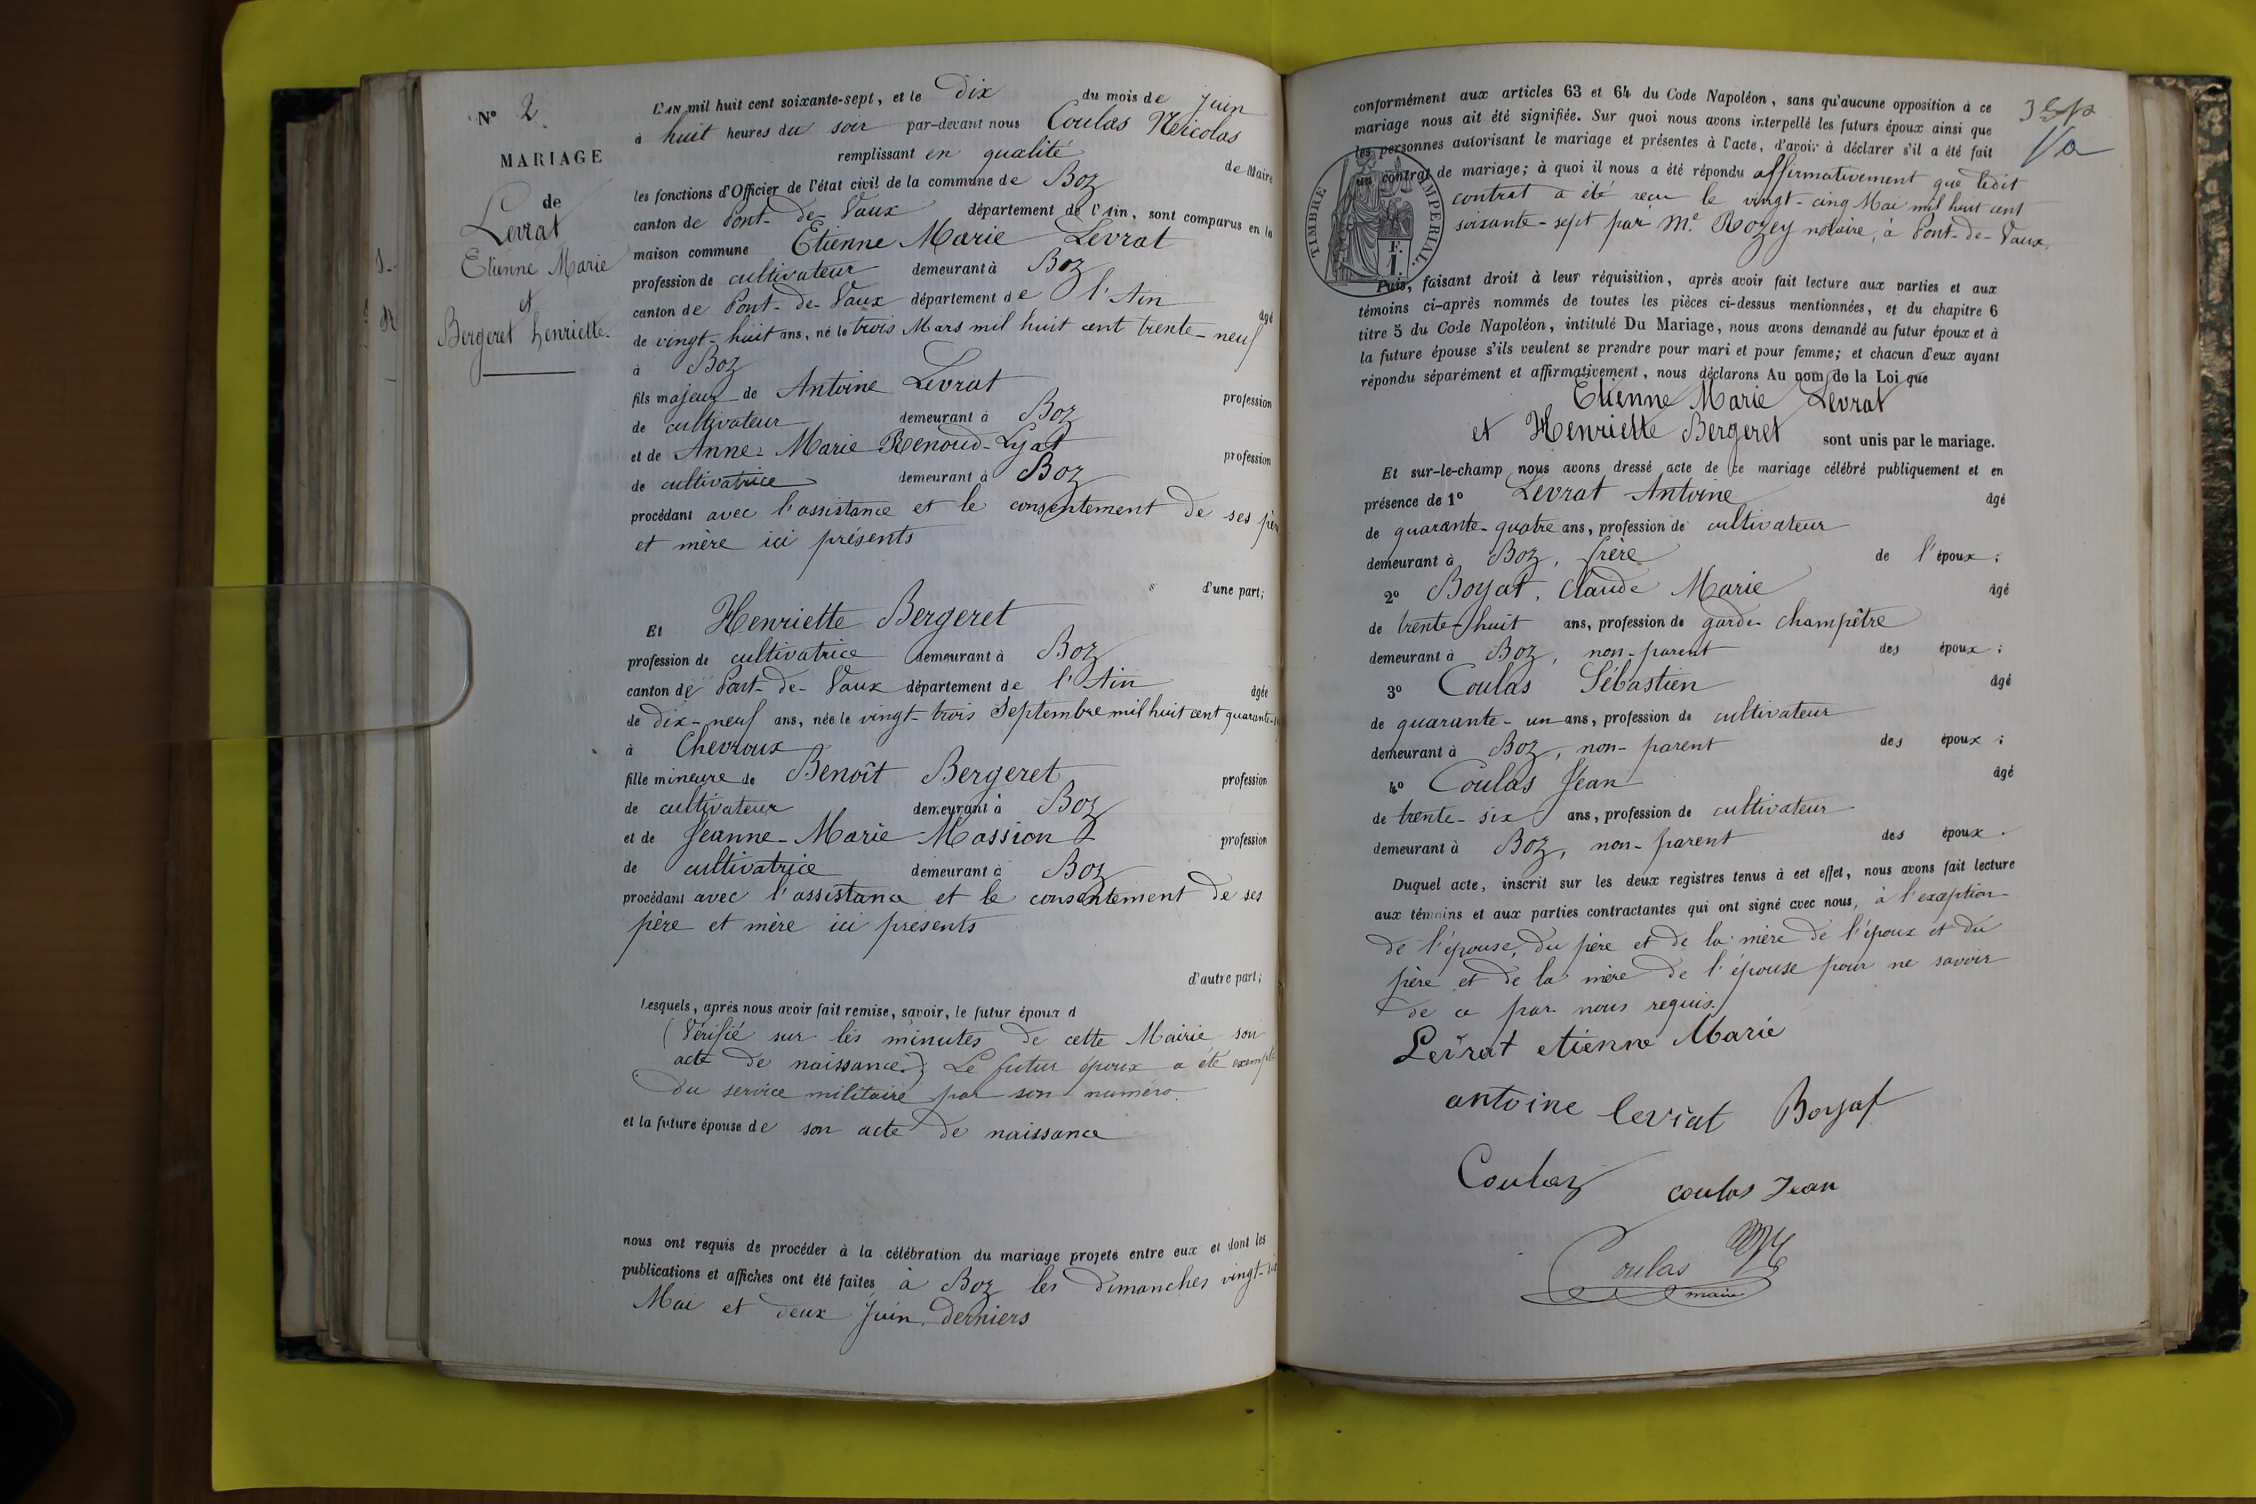 N° 2
MARIAGE
de
Levrat
Etienne Marie
et
Bergeret henriette.
L'AN mil huit cent soixante-sept, et le dix du mois de Juin
à huit heures du soir par-devant nous Coulas Neicolas
remplissant en qualité de Maire
les fonctions d'Officier de l'état civil de la commune de Boz
canton de Pont-de-Vaux département de l'Ain, sont comparus en la
maison commune Etienne Marie Levrat
profession de cultivateur demeurant à Boz
canton de Pont-de-Vaux département de l'Ain âgé
de vingt-huit ans, né le trois Mars mil huit cent trente-neuf
à Boz
fils majeur de Antoine Levrat profession
de cultivateur demeurant à Boz
et de Anne-Marie Renoud-Lyat profession
de cultivatrice demeurant à Boz
procédant avec l'assistance et le consentement de ses père
et mère ici présents
d'une part;
Et Henriette Bergeret
profession de cultivatrice demeurant à Boz
canton de Pont-de-Vaux département de l'Ain âgée
de dix-neuf ans, née le vingt-trois Septembre mil huit cent quarante-
à Chevroux
fille mineure de Benoît Bergeret profession
de cultivateur demeurant à Boz
et de Jeanne-Marie Massion profession
de cultivatrice demeurant à Boz
procédant avec l'assistance et le consentement de ses
père et mère ici présents
d'autre part;
Lesquels, après nous avoir fait remise, savoir, le futur époux d
(Vérifié sur les minutes de cette Mairie son
acte de naissance.) Le futur époux a été exempté
du service militaire par son numéro.
et la future épouse de son acte de naissance
nous ont requis de procéder à la célébration du mariage projeté entre eux et dont les
publications et affiches ont été faites à Boz les dimanches vingt-six
Mai et deux Juin derniers
conformément aux articles 63 et 64 du Code Napoléon, sans qu'aucune opposition à ce
mariage nous ait été signifiée. Sur quoi nous avons interpellé les futurs époux ainsi que
les personnes autorisant le mariage et présentes à l'acte, d'avoir à déclarer s'il a été fait
un contrat de mariage; à quoi il nous a été répondu affirmativement que ledit
contrat a été reçu le vingt-cinq Mai mil huit cent
soixante-sept par Me. Rozey notaire, à Pont-de-Vaux.
TIMBRE IMPERIAL.
F.
1.
Puis, faisant droit à leur réquisition, après avoir fait lecture aux parties et aux
témoins ci-après nommés de toutes les pièces ci-dessus mentionnées, et du chapitre 6
titre 5 du Code Napoléon, intitulé Du Mariage, nous avons demandé au futur époux et à
la future épouse s'ils veulent se prendre pour mari et pour femme; et chacun d'eux ayant
répondu séparément et affirmativement, nous déclarons Au nom de la Loi que
Etienne Marie Levrat
et Henriette Bergeret sont unis par le mariage.
Et sur-le-champ nous avons dressé acte de ce mariage célébré publiquement et en
présence de 1° Levrat Antoine âgé
de quarante-quatre ans, profession de cultivateur
demeurant à Boz, frère de l'époux;
2° Boyat, Claude Marie âgé
de trente-huit ans, profession de garde-champêtre
demeurant à Boz, non-parent des époux;
3° Coulas Sébastien âgé
de quarante-un ans, profession de cultivateur
demeurant à Boz, non-parent des époux;
4° Coulas Jean âgé
de trente-six ans, profession de cultivateur
demeurant à Boz, non-parent des époux.
Duquel acte, inscrit sur les deux registres tenus à cet effet, nous avons fait lecture
aux témoins et aux parties contractantes qui ont signé avec nous, à l'exception
de l'épouse, du père et de la mère de l'époux et du
père et de la mère de l'épouse pour ne savoir
de ce par nous requis.
Levrat etienne Marie
antoine levrat Boyat
Coulas coulas Jean
Coulas
maire